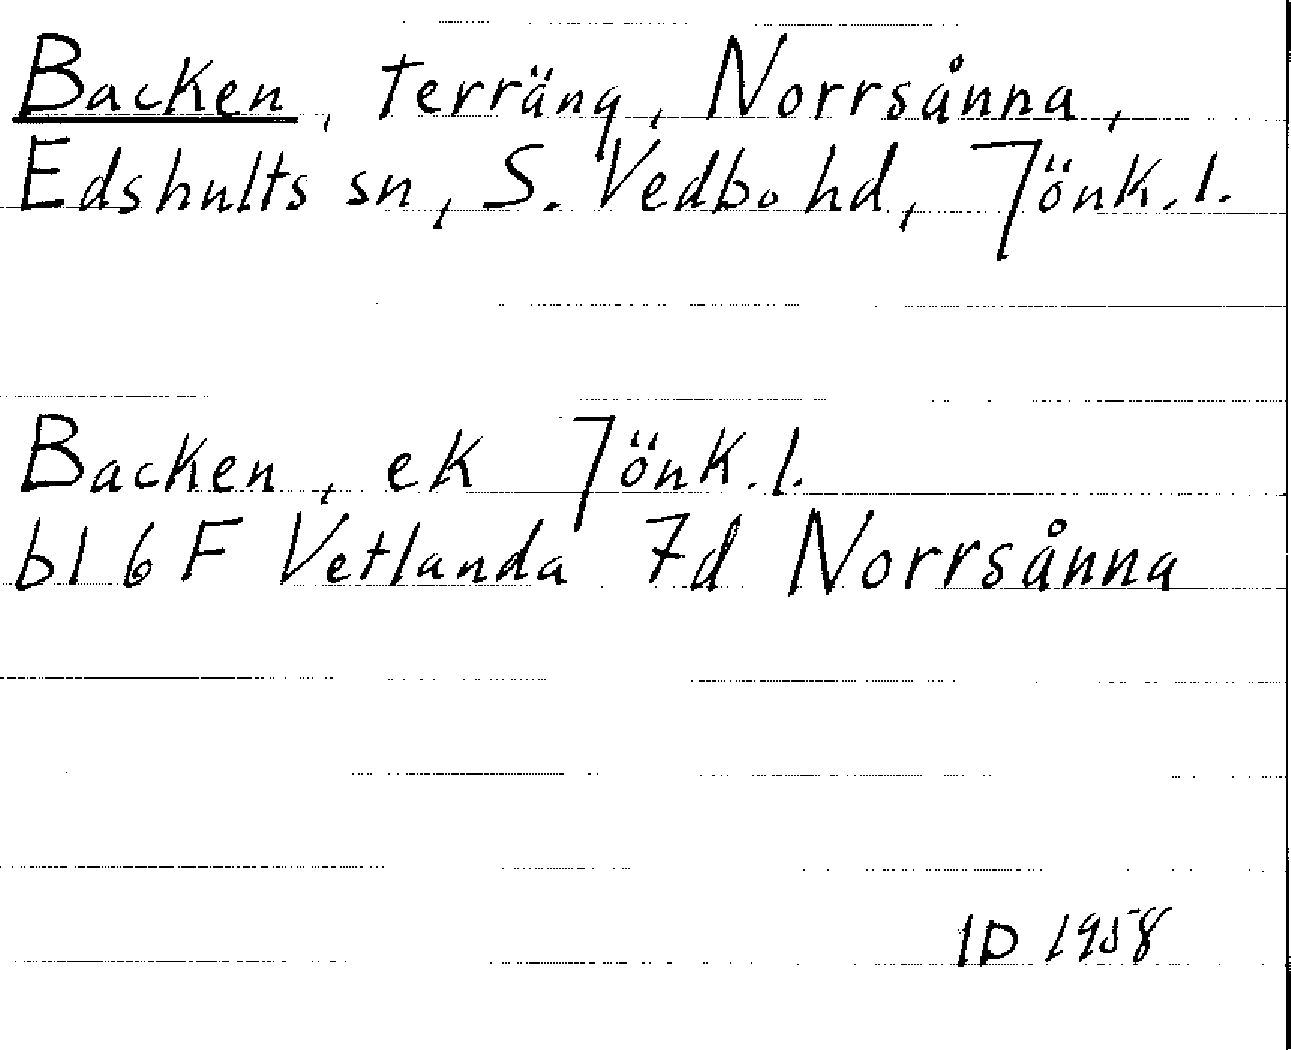 Backen, terräng, Norrsånna,
Edshults sn, S. Vedbo hd, Jönk.l.
Backen, ek Jönk.l.
bl 6 F Vetlanda 7d Norrsånna
ID 1958